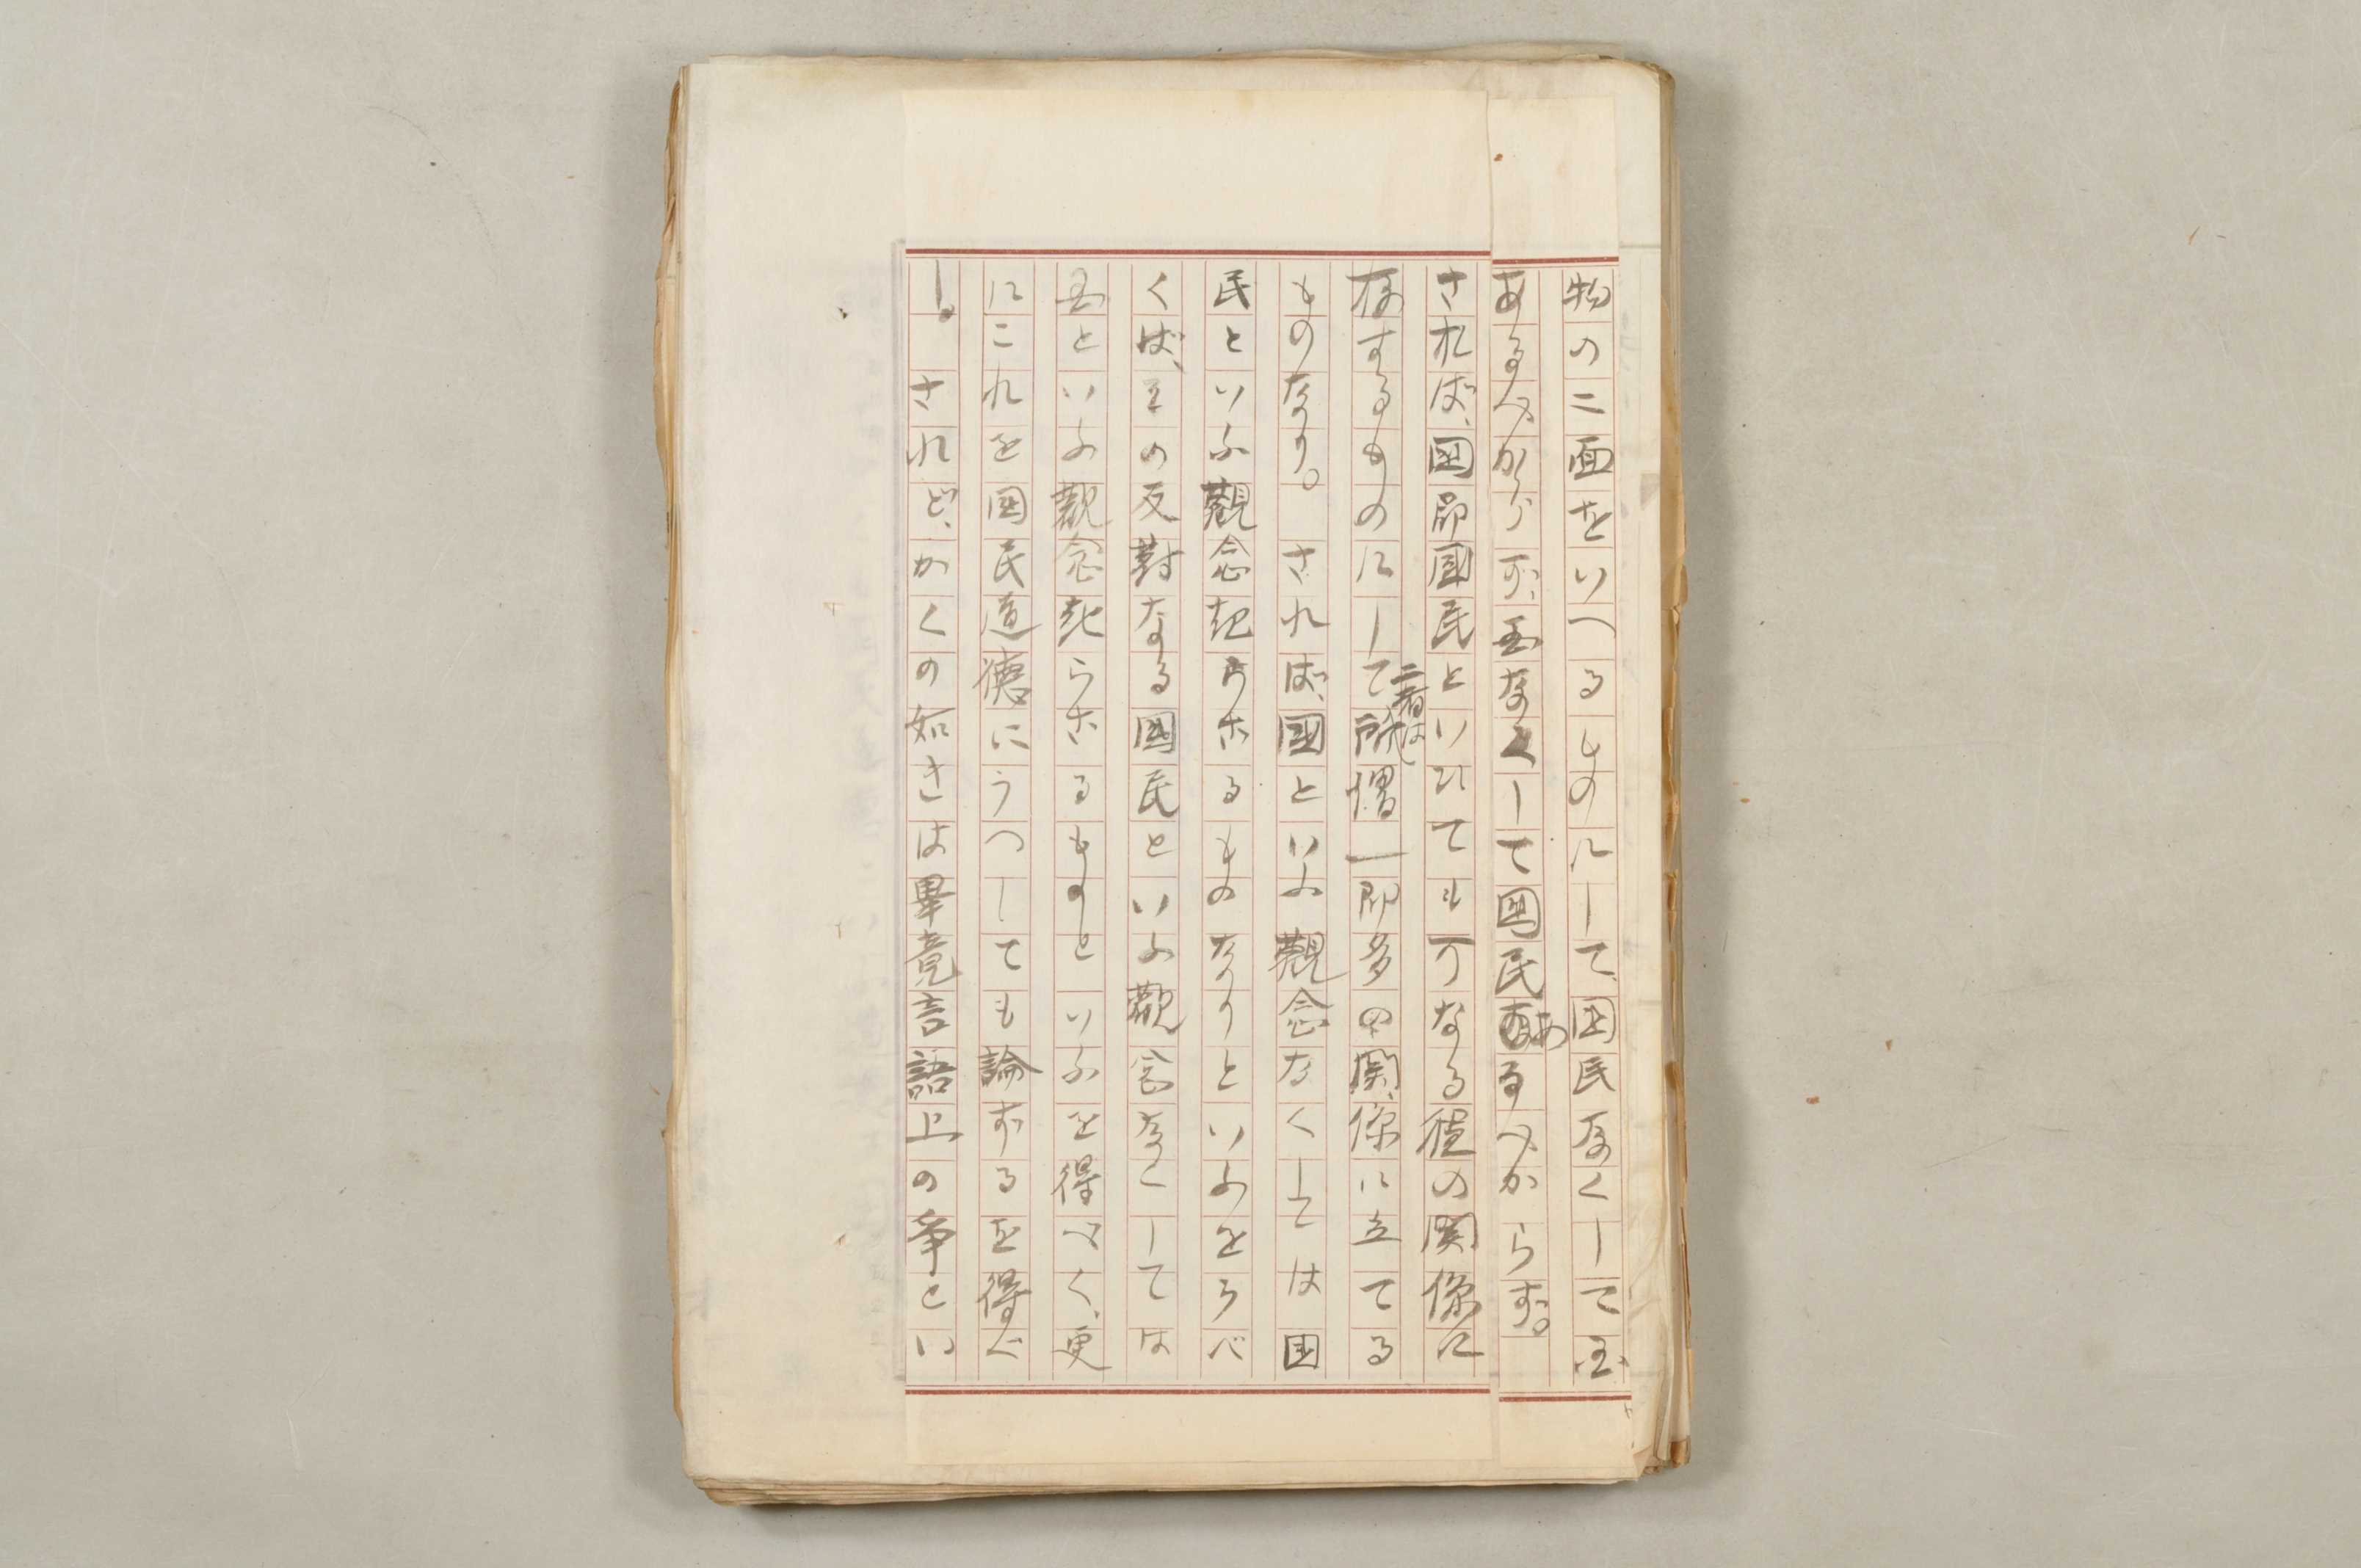 物の二面をいへるものにして、国民なくして国
あるべからず、国なくして国民あるべからず。
されば、国即国民といひても可なる程の関係に
存するものにして二者は所謂一即多の関係に立てる
ものなり。されば、國といふ觀念なくしては国
民といふ觀念起らざるものなりといふをうべ
くば、その反對なる國民といふ觀念なくしては
国といふ觀念起らざるものといふを得べく、更
にこれを国民道徳にうつしても論ずるを得べ
し。されど、かくの如きは畢竟言語上の争とい